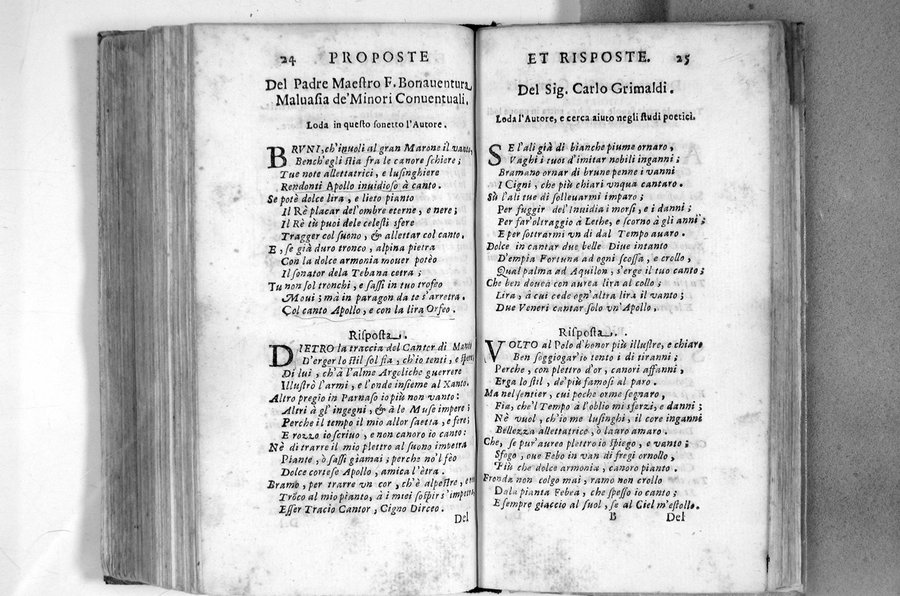 24 PROPOSTE
Del Padre Maestro F. Bonauentura
Maluasia de' Minori Conuentuali.
Loda in questo sonetto l'Autore.
BRVNI, ch'inuoli al gran Marone il vanto,
Bench'egli stia fra le canore schiere;
Tue note allettatrici, e lusinghiere
Rendonti Apollo inuidioso à canto.
Se potè dolce lira, e lieto pianto
Il Rè placar del'ombre eterne, e nere;
Il Rè tù puoi dele celesti sfere
Tragger col suono, & allettar col canto.
E, se già duro tronco, alpina pietra
Con la dolce armonia mouer potèo
Il sonator dela Tebana cetra;
Tu non sol tronchi, e sassi in tuo trofeo
Moui; mà in paragon da te s'arretra.
Col canto Apollo, e con la lira Orfeo.
Risposta.
DIETRO la traccia del Cantor di
D'erger lo stil sol fia, ch'io tenti, e speri
Di lui, ch'à l'alme Argoliche guerrere
Illustrò l'armi, e l'onde insieme al Xanto.
Altro pregio in Parnaso io più non vanto:
Altri à gl'ingegni, & à le Muse impere;
Perche il tempo il mio allor saetta, e fere;
E rozzo io scriuo, e non canoro io canto:
Nè di trarre il mio plettro al suono impetra
Piante, ò sassi giamai; perche nol fèo
Dolce cortese Apollo, amica l'etra.
Bramo, per trarre vn cor, ch'è alpestre, e
Tròco al mio pianto, à i miei sospir s'impetra
Esser Tracio Cantor, Cigno Dirceo.
Del
ET RISPOSTE. 25
Del Sig. Carlo Grimaldi.
Loda l'Autore, e cerca aiuto negli studi poetici.
SE l'ali già di bianche piume ornaro,
Vaghi i tuoi d'imitar nobili inganni;
Bramano ornar di brune penne i vanni
I Cigni, che più chiari vnqua cantaro.
Sù l'ali tue di solleuarmi imparo;
Per fuggir del'Inuidia i morsi, e i danni;
Per far'oltraggio à Lethe, e scorno à gli anni;
E per sottrarmi vn dì dal Tempo auaro.
Dolce in cantar due belle Diue intanto
D'empia Fortuna ad ogni scossa, e crollo,
Qual palma ad Aquilon, s'erge il tuo canto;
Che ben douea con aurea lira al collo;
Lira, à cui cede ogn'altra lira il vanto;
Due Veneri cantar solo vn'Apollo.
Risposta.
VOLTO al Polo d'honor più illustre, e chiaro
Ben soggiogar'io tento i dì tiranni;
Perche, con plettro d'or, canori affanni,
Erga lo stil, de' più famosi al paro.
Ma nel sentier, cui poche orme segnaro,
Fia, che'l Tempo à l'oblio mi sferzi, e danni;
Nè vuol, ch'io me lusinghi, il core inganni
Bellezza allettatrice, ò lauro amaro.
Che, se pur'aureo plettro io spiego, e vanto;
Sfogo, oue Febo in van di fregi ornollo,
Più che dolce armonia, canoro pianto.
Fronda non colgo mai, ramo non crollo
Dala pianta Febea, che spesso io canto;
E sempre giaccio al suol, se al Ciel m'estollo.
B Del